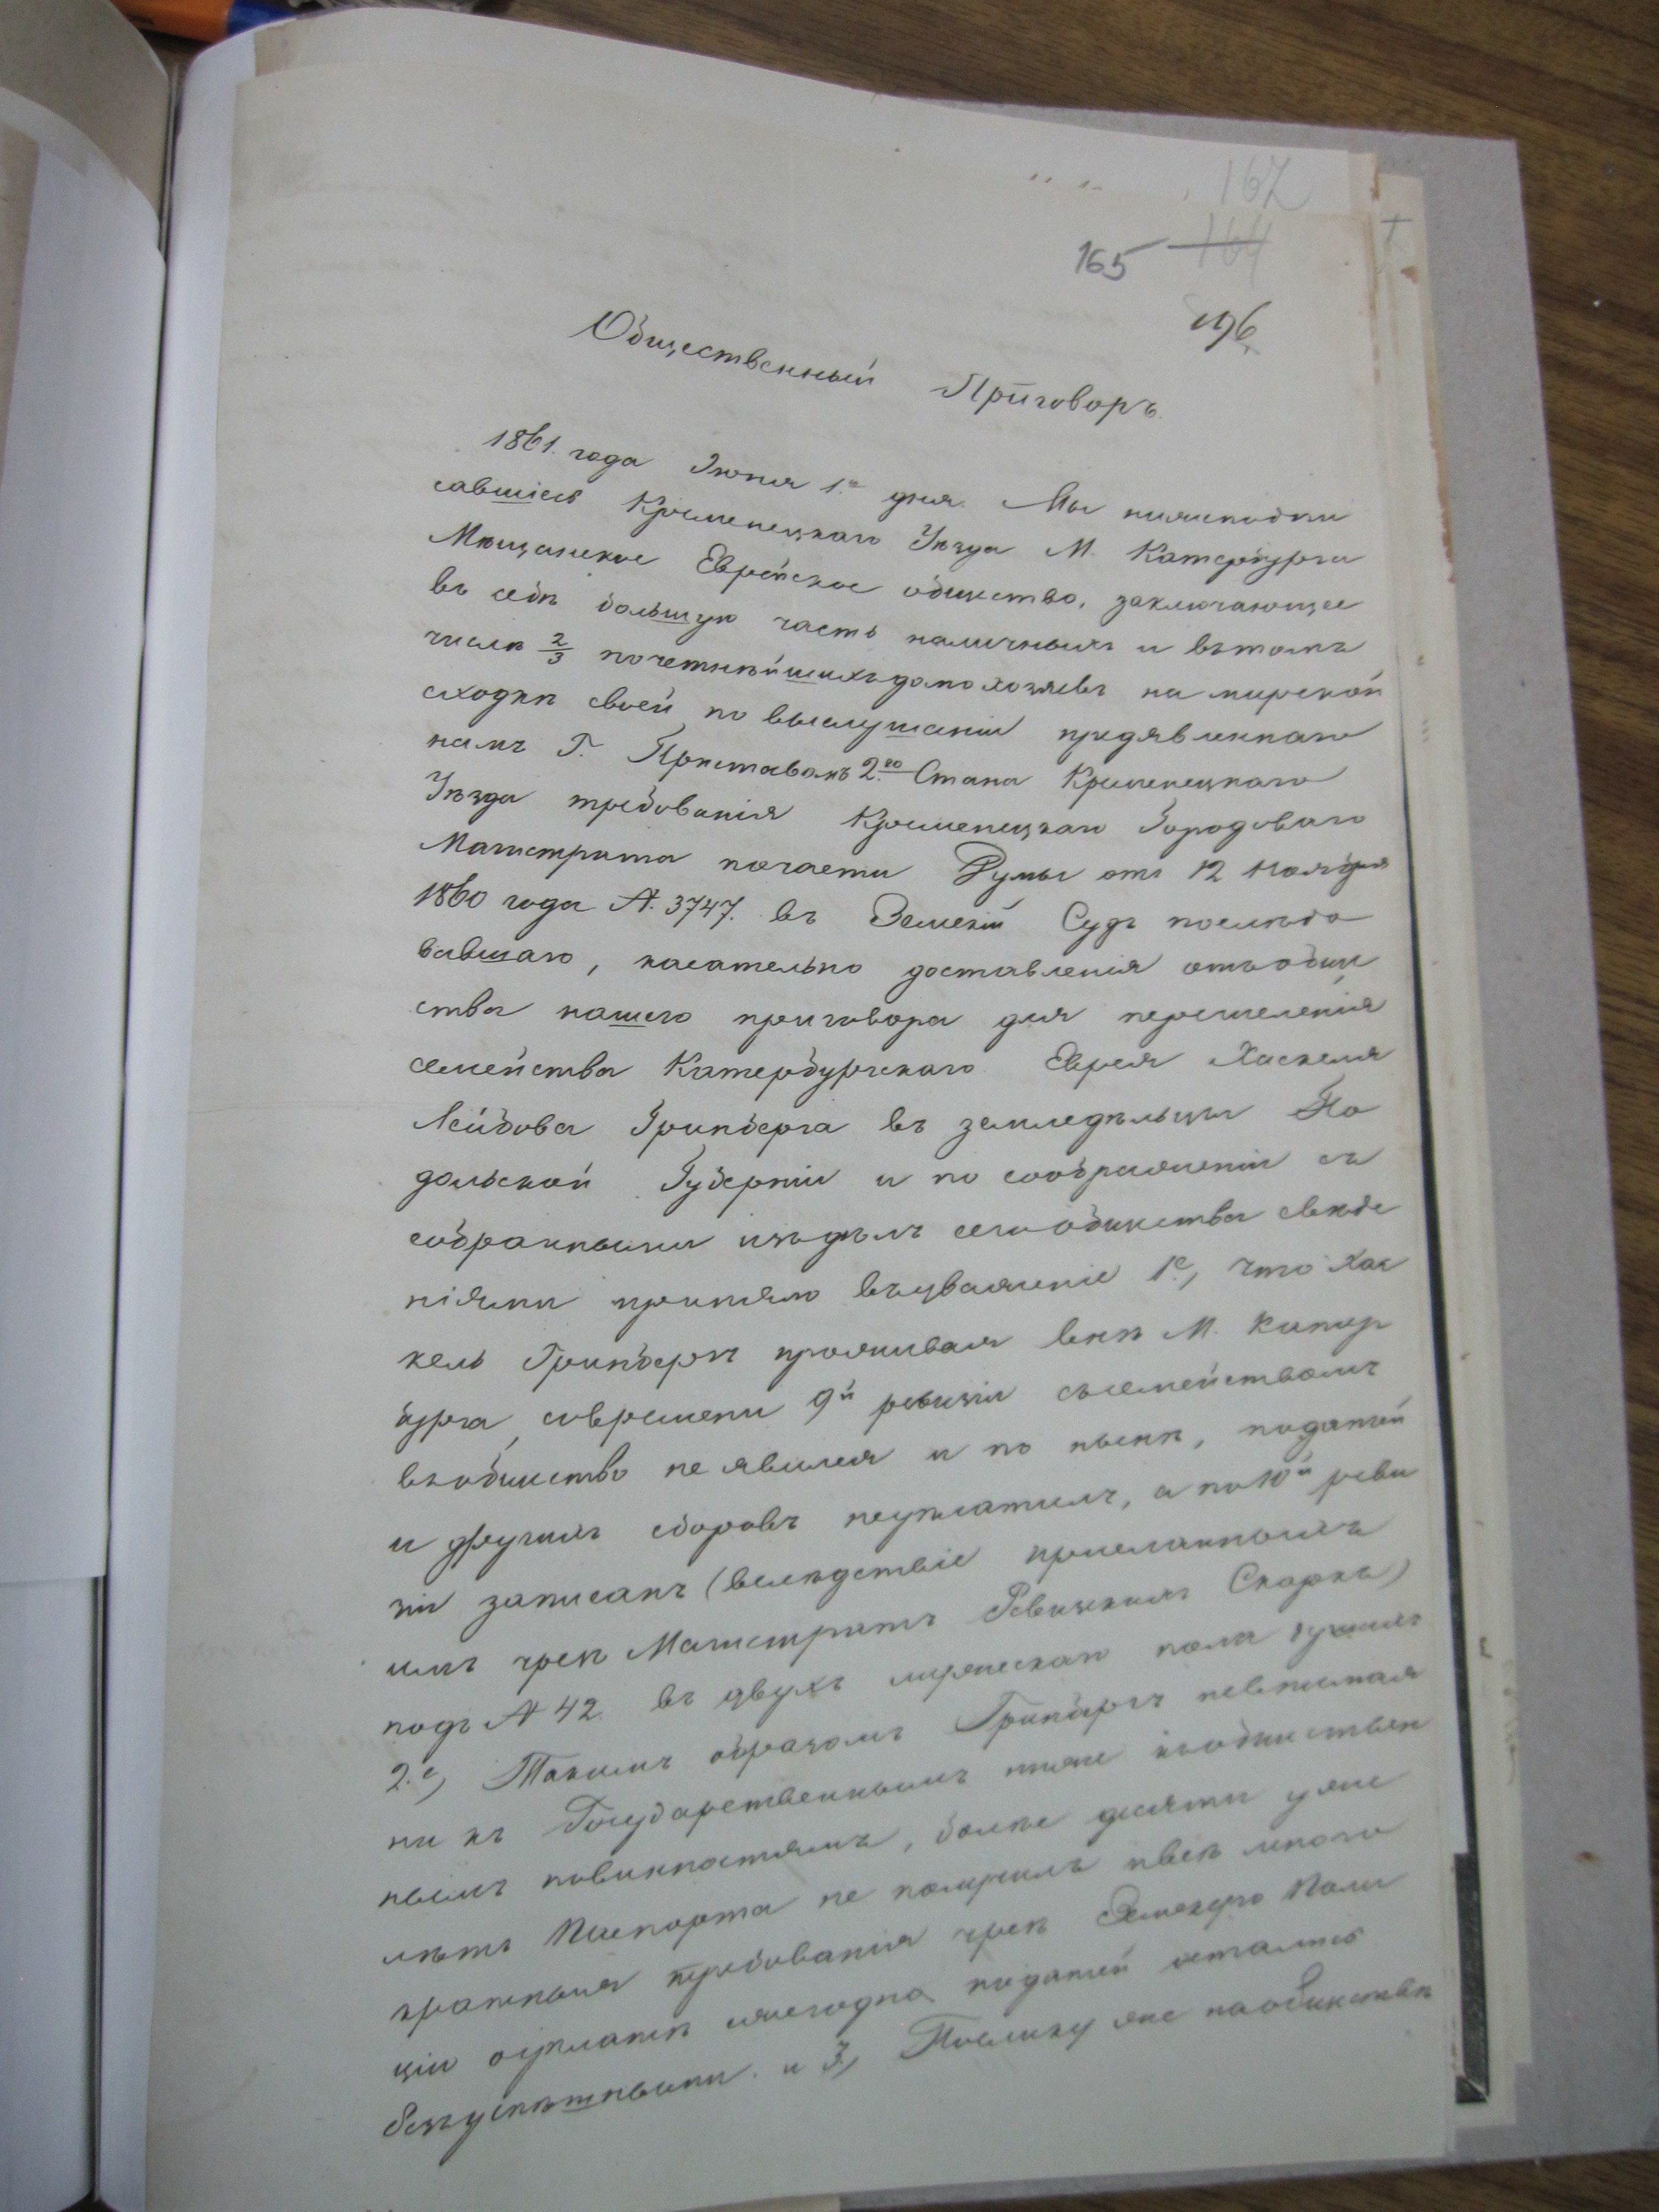 167
165 164
196
Общественный Приговоръ.
1861. года Июня 1.го дня. Мы нижеподпи
савшіесь Кременецкаго Уѣзда М. Катербурга
Мѣщанское Еврейское общество, заключающее
въ себѣ большую часть наличныхъ и въ томъ
числѣ 2/3 почетнѣйшихъ домохозяевъ на мирской
сходкѣ своей по выслушаніи предявленнаго
намъ Г. Приставомъ 2.го Стана Кременецкаго
Уѣзда требованія Кременецкаго Городоваго
Магистрата по части Думы отъ 12 Ноября
1860 года №. 3747. въ Земскій Судъ послѣдо
вавшаго, касательно доставленія отъ обще
ства нашего приговора для перечисленія
семейства Катербургскаго Еврея Хаскеля
Лейбова Гринберга въ земледѣльцы По
дольской Губерніи и по соображеніи съ
собранными изъ дѣлъ сего общества свѣде
ніями приняло въ уваженіе 1е, что Хас
кель Гринбергъ проживая внѣ М. Катер
бурга, со времени 9й ревизіи съ семействомъ
въ общество не явился и по нынѣ, податей
и другихъ сборовъ неуплатилъ, а по 10й реви
зіи записанъ (вслѣдствіе присланныхъ
имъ чрезъ Магистратъ Ревизкихъ Сказкъ)
подъ № 42. въ двухъ мужескаго пола душахъ
2.е, Такимъ образомъ Гринбергъ невнимая
ни къ Государственнымъ ниже къ обществен
нымъ повинностямъ, более десяти уже
лѣтъ Паспорта не получилъ и всѣ много
кратныя требованія чрезъ Земскую Поли
цію о уплатѣ ежегодно податей остались
безъуспѣшными. и 3, Поелику же на обществѣ